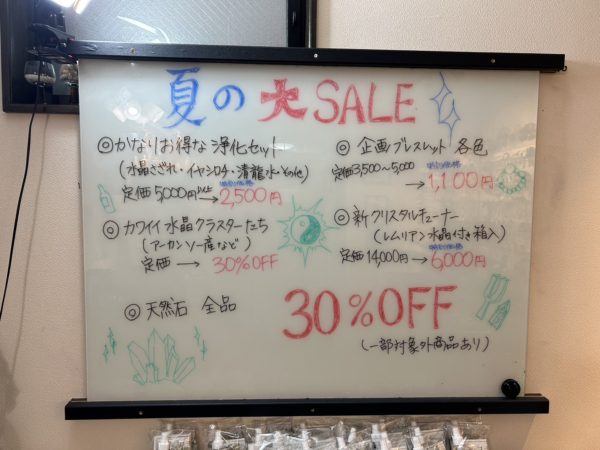 夏の大SALE
◎かなりお得な浄化セット
(水晶さざれ・イヤシロチ・清龍水・その他)
定価5,000円以上→2,500円
特別価格
◎カワイイ水晶クラスターたち
(アーカンソー産など)
定価→30%OFF
◎天然石 全品
30%OFF
(一部対象外商品あり)
◎企画ブレスレット 各色
定価3,500〜5,000
特別価格
→1,100円
◎新クリスタルチューナー
(レムリアン水晶付き箱入)
特別価格
定価14,000円→6,000円